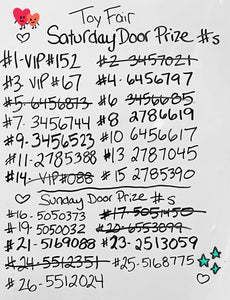 Toy Fair
Saturday Door Prize #s
#1-VIP#152 #2-3457021
#3 VIP#67 #4-6456797
#5-6456873 #6 3456685
#7-3456744 #8 2786619
#9-3456523 #10 6456617
#11-2785388 #13 2787045
#14-VIP#088 #15 2785390
Sunday Door Prize #s
#16-5050373 #17-5051450
#19-5050032 #20-6553099
#21-5169088 #23-2513059
#24-5512351 #25-5168775
#26-5512024